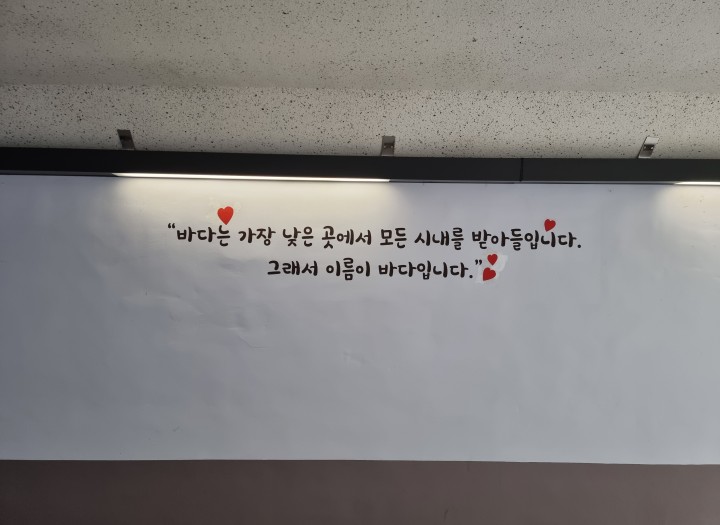 “바다는 가장 낮은 곳에서 모든 시내를 받아들입니다.
그래서 이름이 바다입니다.”